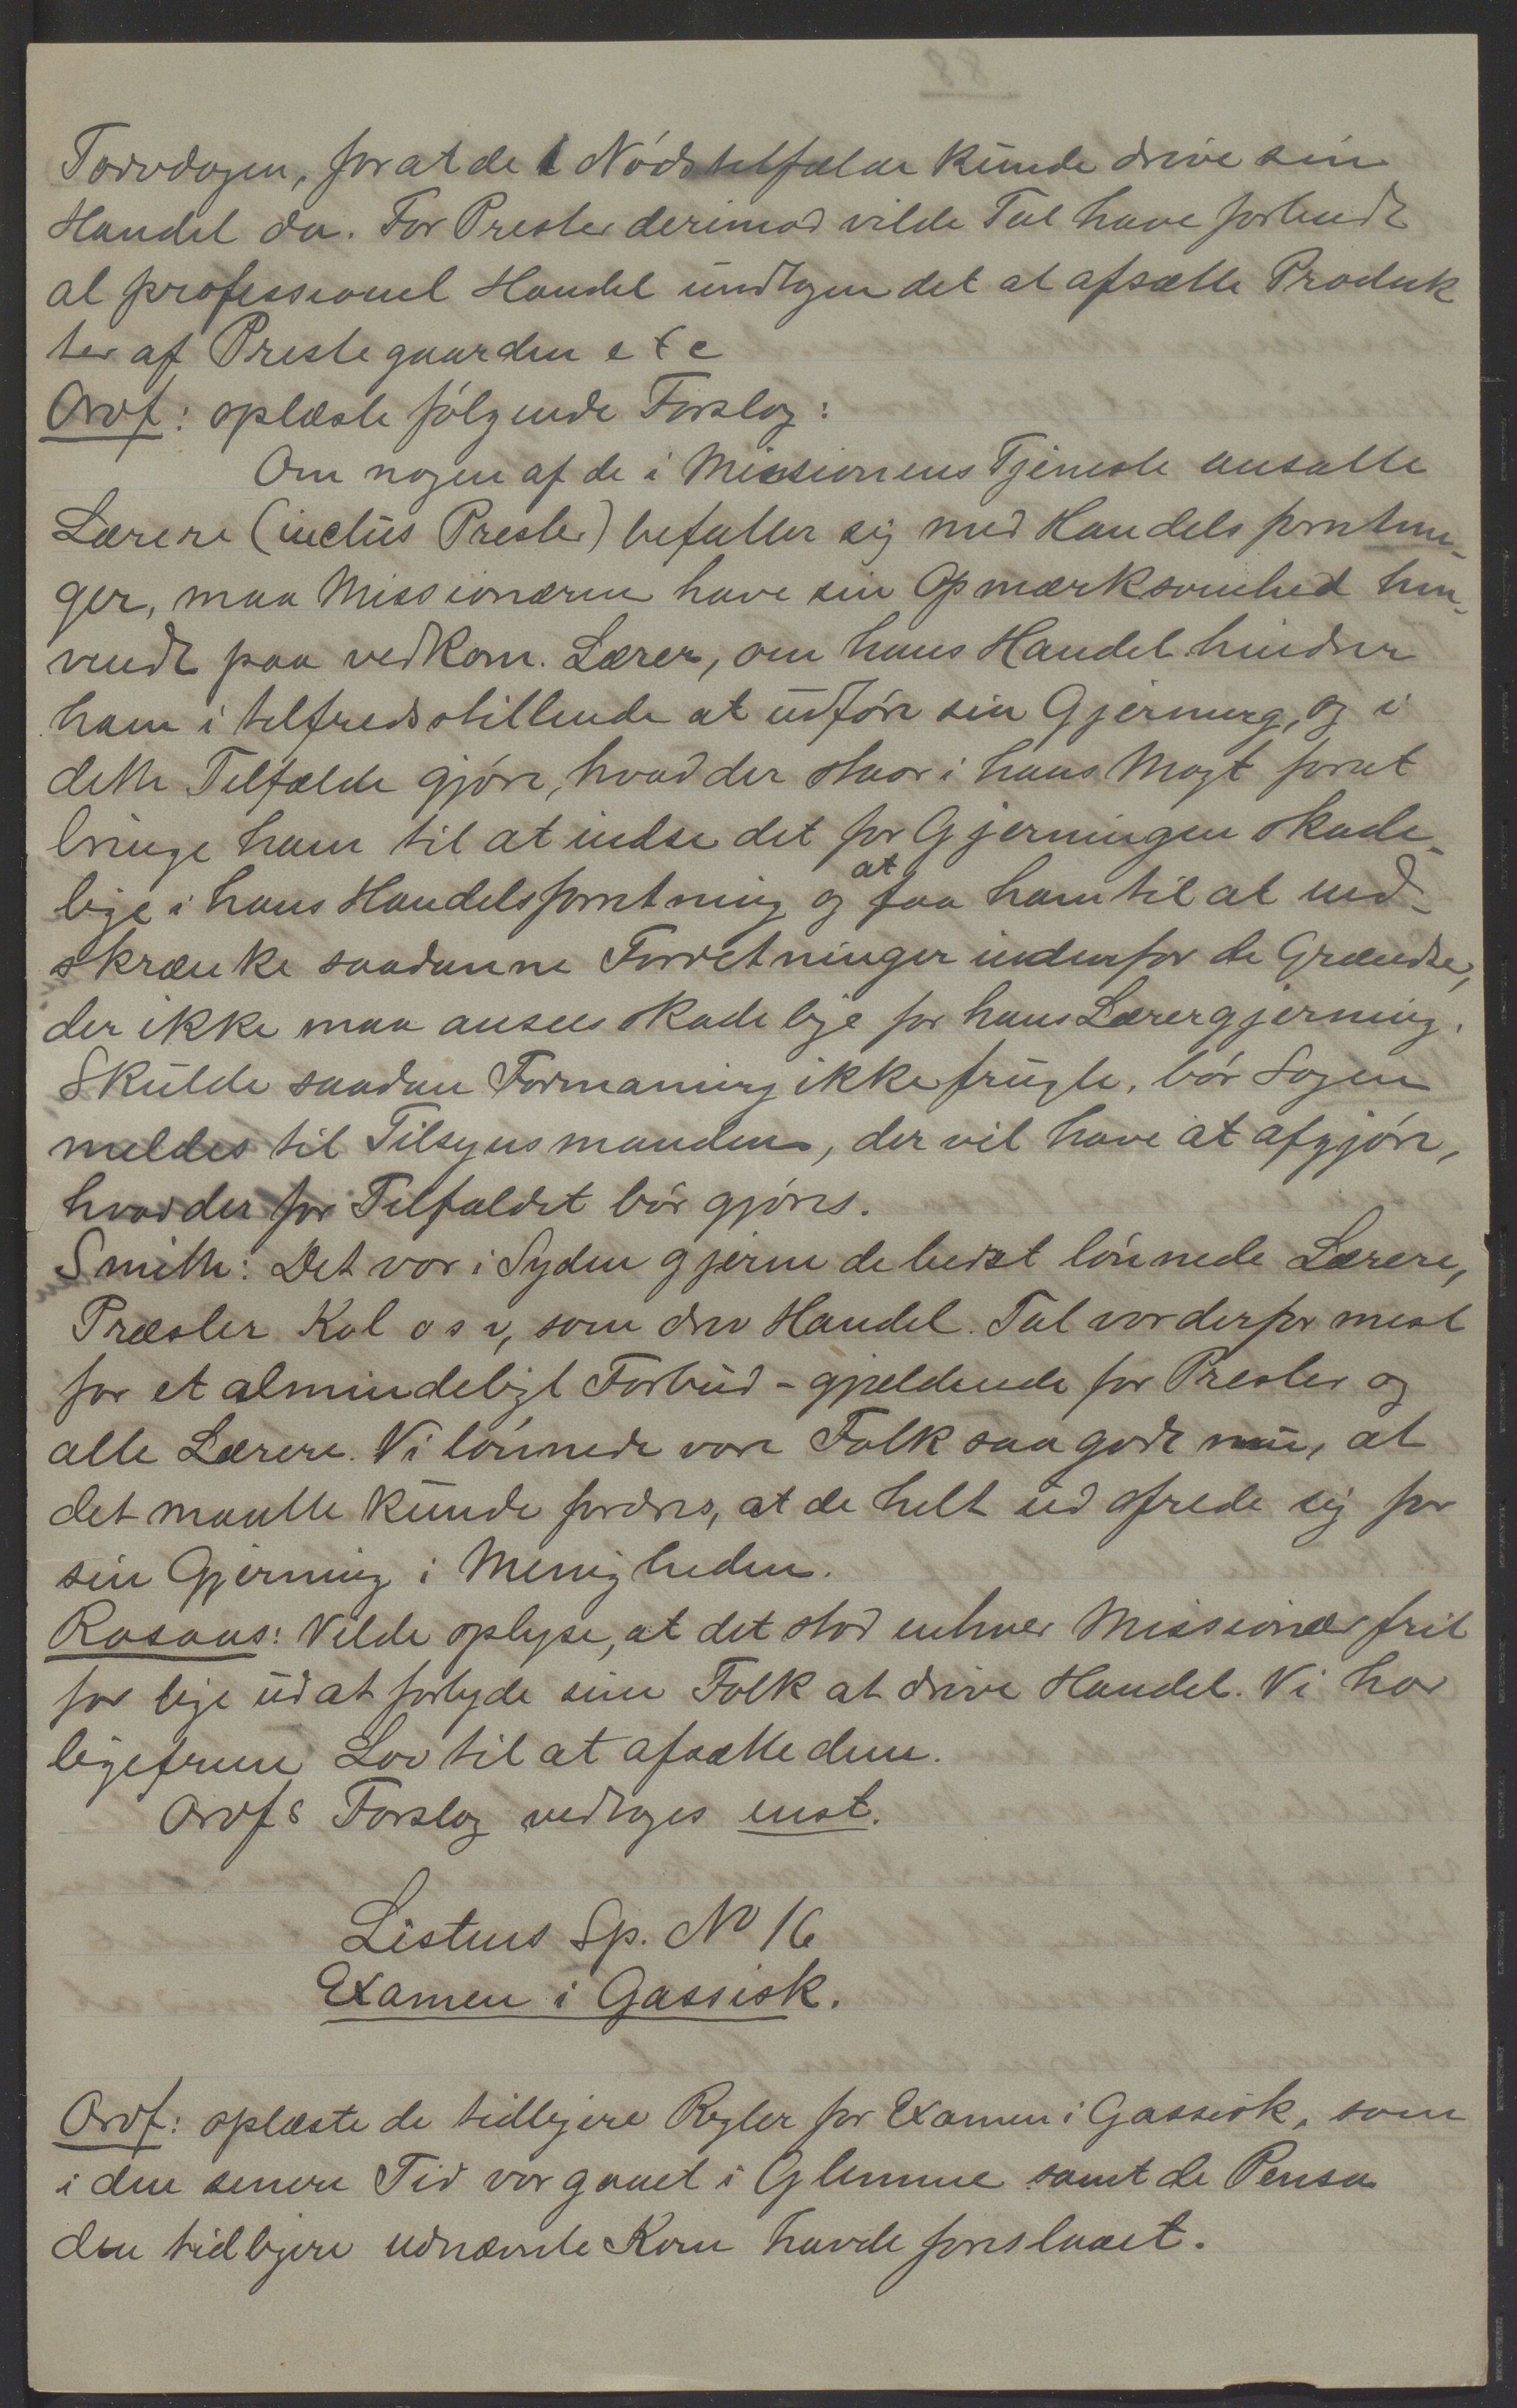 Torvdagen, forat de i Nødstilfælde kunde drive sin
Handel da. For Prester derimod vilde Tal have forbudt
al professionel Handel undtagen det at afsætte Produk
ter af Prestegaarden etc
Ordf: oplæste følgende Forslag:
Om nogen af de i Missionens Tjeneste ansatte
Lærere (inclus Prester) befatter sig med Handelsforretnin-
ger, maa Missionæren have sin Opmærksomhed hen-
vendt paa vedkom. Lærer, om hans Handel hindrer
ham i tilfredsstillende at udføre sin Gjerning, og i
dette Tilfælde gjøre, hvad der staar i hans Magt forat
bringe ham til at indse det for Gjerningen skade-
lige i hans Handelsforretning og at faa ham til at ind-
skrænke saadanne Forretninger indenfor de Grændse,
der ikke maa ansees skadelige for hans Lærergjerning.
Skulde saadan Formaning ikke frugte, bør Sagen
meldes til Tilsynsmanden, der vil have at afgjøre,
hvad der for Tilfaldet bør gjøres.
Smith: Det var i Syden gjerne de bedst lønnede Lærere,
Præster Kat o s v, som drev Handel. Tal var derfor mest
for et almindeligt Forbud - gjældende for Prester og
alle Lærere. Vi lønnede vore Folk saa godt nu, at
det maatte kunde fordres, at de helt ud ofrede sig for
sin Gjerning i Menigheden.
Rosaas: Vilde oplyse, at det stod enhver Missionær frit
for lige ud at forbyde sine Folk at drive Handel. Vi har
ligefrem Lov til at afsætte dem.
Ordfs Forslag vedtoges enst.
Listens Sp. No 16
Examen i Gassisk.
Ordf: oplæste de tidligere Regler for Examen i Gassisk, som
i den senere Tid var gaaet i Glemme samt de Pensa
den tidligere udnævnte Kom havde foreslaaet.